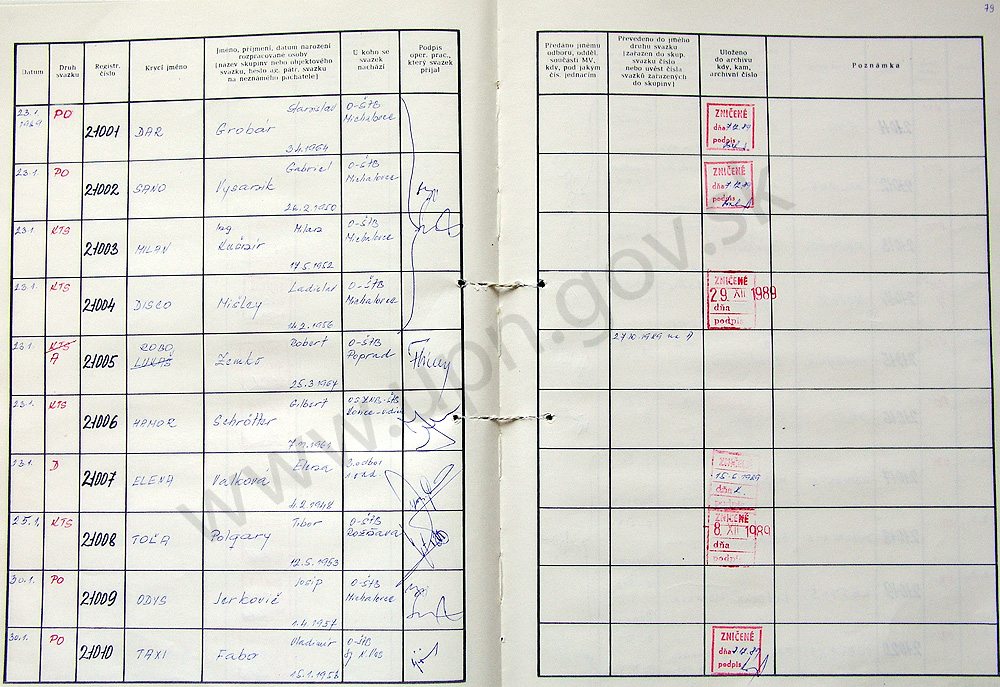 79
Datum
Druh svazku
Registr. číslo
Krycí jméno
Jméno, příjmení, datum narození
rozpracované osoby
[název skupiny nebo objektového
svazku, heslo ag. pátr. svazku
na neznámého pachatele]
U koho se
svazek
nachází
Podpis
oper. prac.,
který svazek
přijal
Předáno jinému
odboru, odděl.
součásti MV,
kdy, pod jakým
čís. jednacím
Převedeno do jiného
druhu svazku
[zařazen do skup.
svazku číslo
nebo uvést čísla
svazků zařazených
do skupiny]
Uloženo
do archivu
kdy, kam,
archivní číslo
Poznámka
23.1. 1989 PO 21001 DAR Stanislav Grobár 3.4.1964 O-ŠtB Michalovce
ZNIČENÉ
dňa 7.12.89
podpis
23.1. PO 21002 SANO Gabriel 26.2.1950 O-ŠtB Michalovce
ZNIČENÉ
dňa 7.12.89
podpis
23.1. KTS 21003 MILAN Ing. Milan 17.5.1952 O-ŠtB Michalovce
23.1. KTS 21004 DISCO Ladislav 1956 O-ŠtB Michalovce
ZNIČENÉ
29. XII 1989
dňa
podpis
23.1. KTS A 21005 ROBO LUKÁŠ Robert Zemko 25.3.1967 O-ŠtB Poprad
27.10.1989 na A
23.1. KTS 21006 HAMOR Gilbert Schrötter
23.1. D 21007 ELENA Elena Valkova 4.2.1948 3. odbor
15.6.1989
dňa
25.1. KTS 21008 TOĽA Tibor Polgary 12.5.1953 O-ŠtB Rožňava
ZNIČENÉ
8. XII 1989
dňa
podpis
30.1. PO 21009 ODYS Josip Jerkovič 1.4.1957 O-ŠtB Michalovce
30.1. PO 21010 TAXI Vladimír Fabor 15.1.1956 O-ŠtB
ZNIČENÉ
dňa
podpis
www.upn.gov.sk